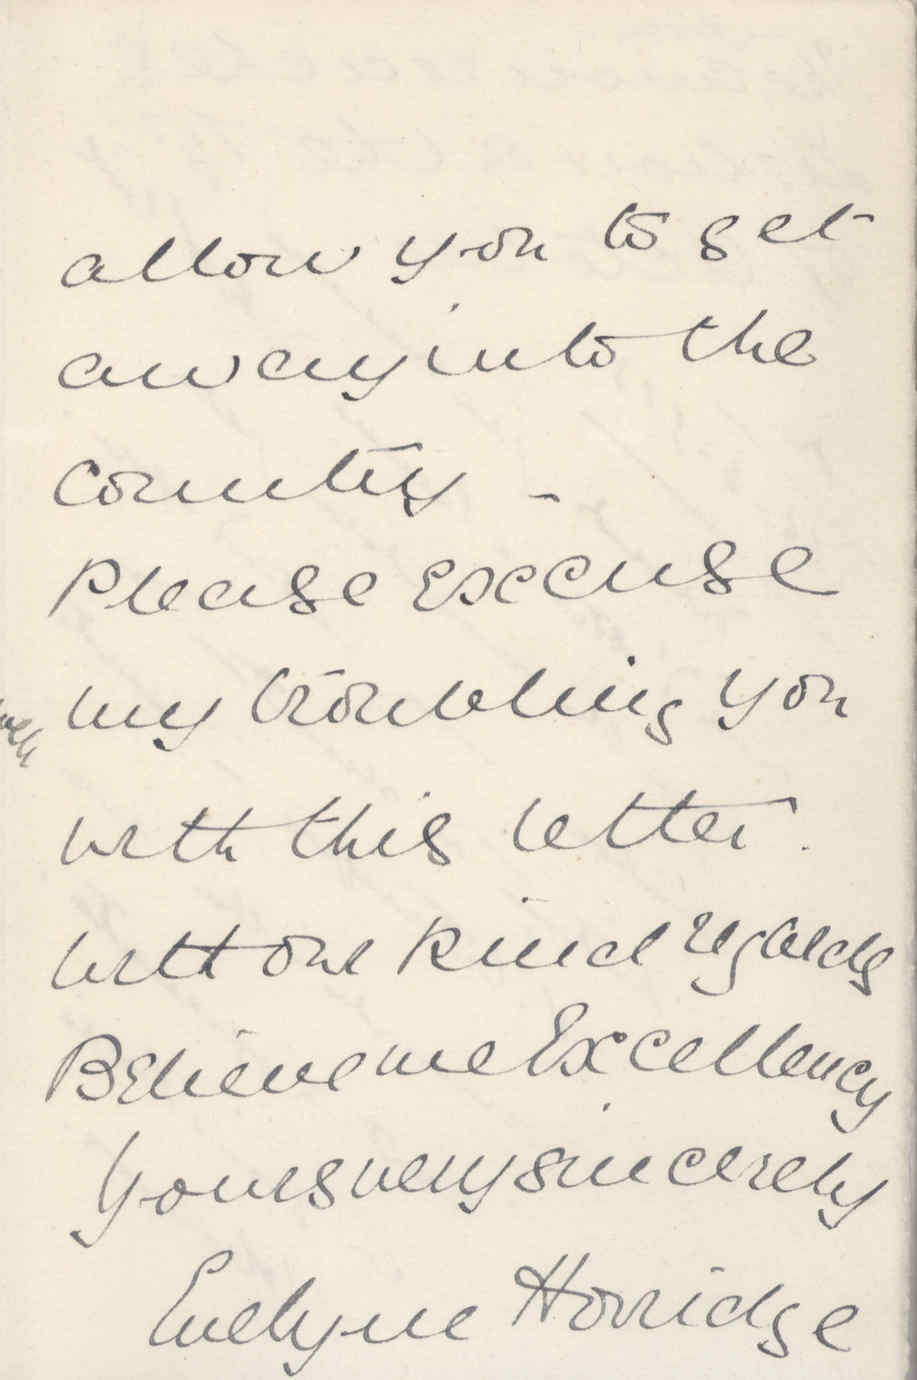 allow you to get
away into the
country -
Please Excuse
my troubling you
with this letter.
with our kind regards
Believe me Excellency
Yours very sincerely
Evelyne Horridge